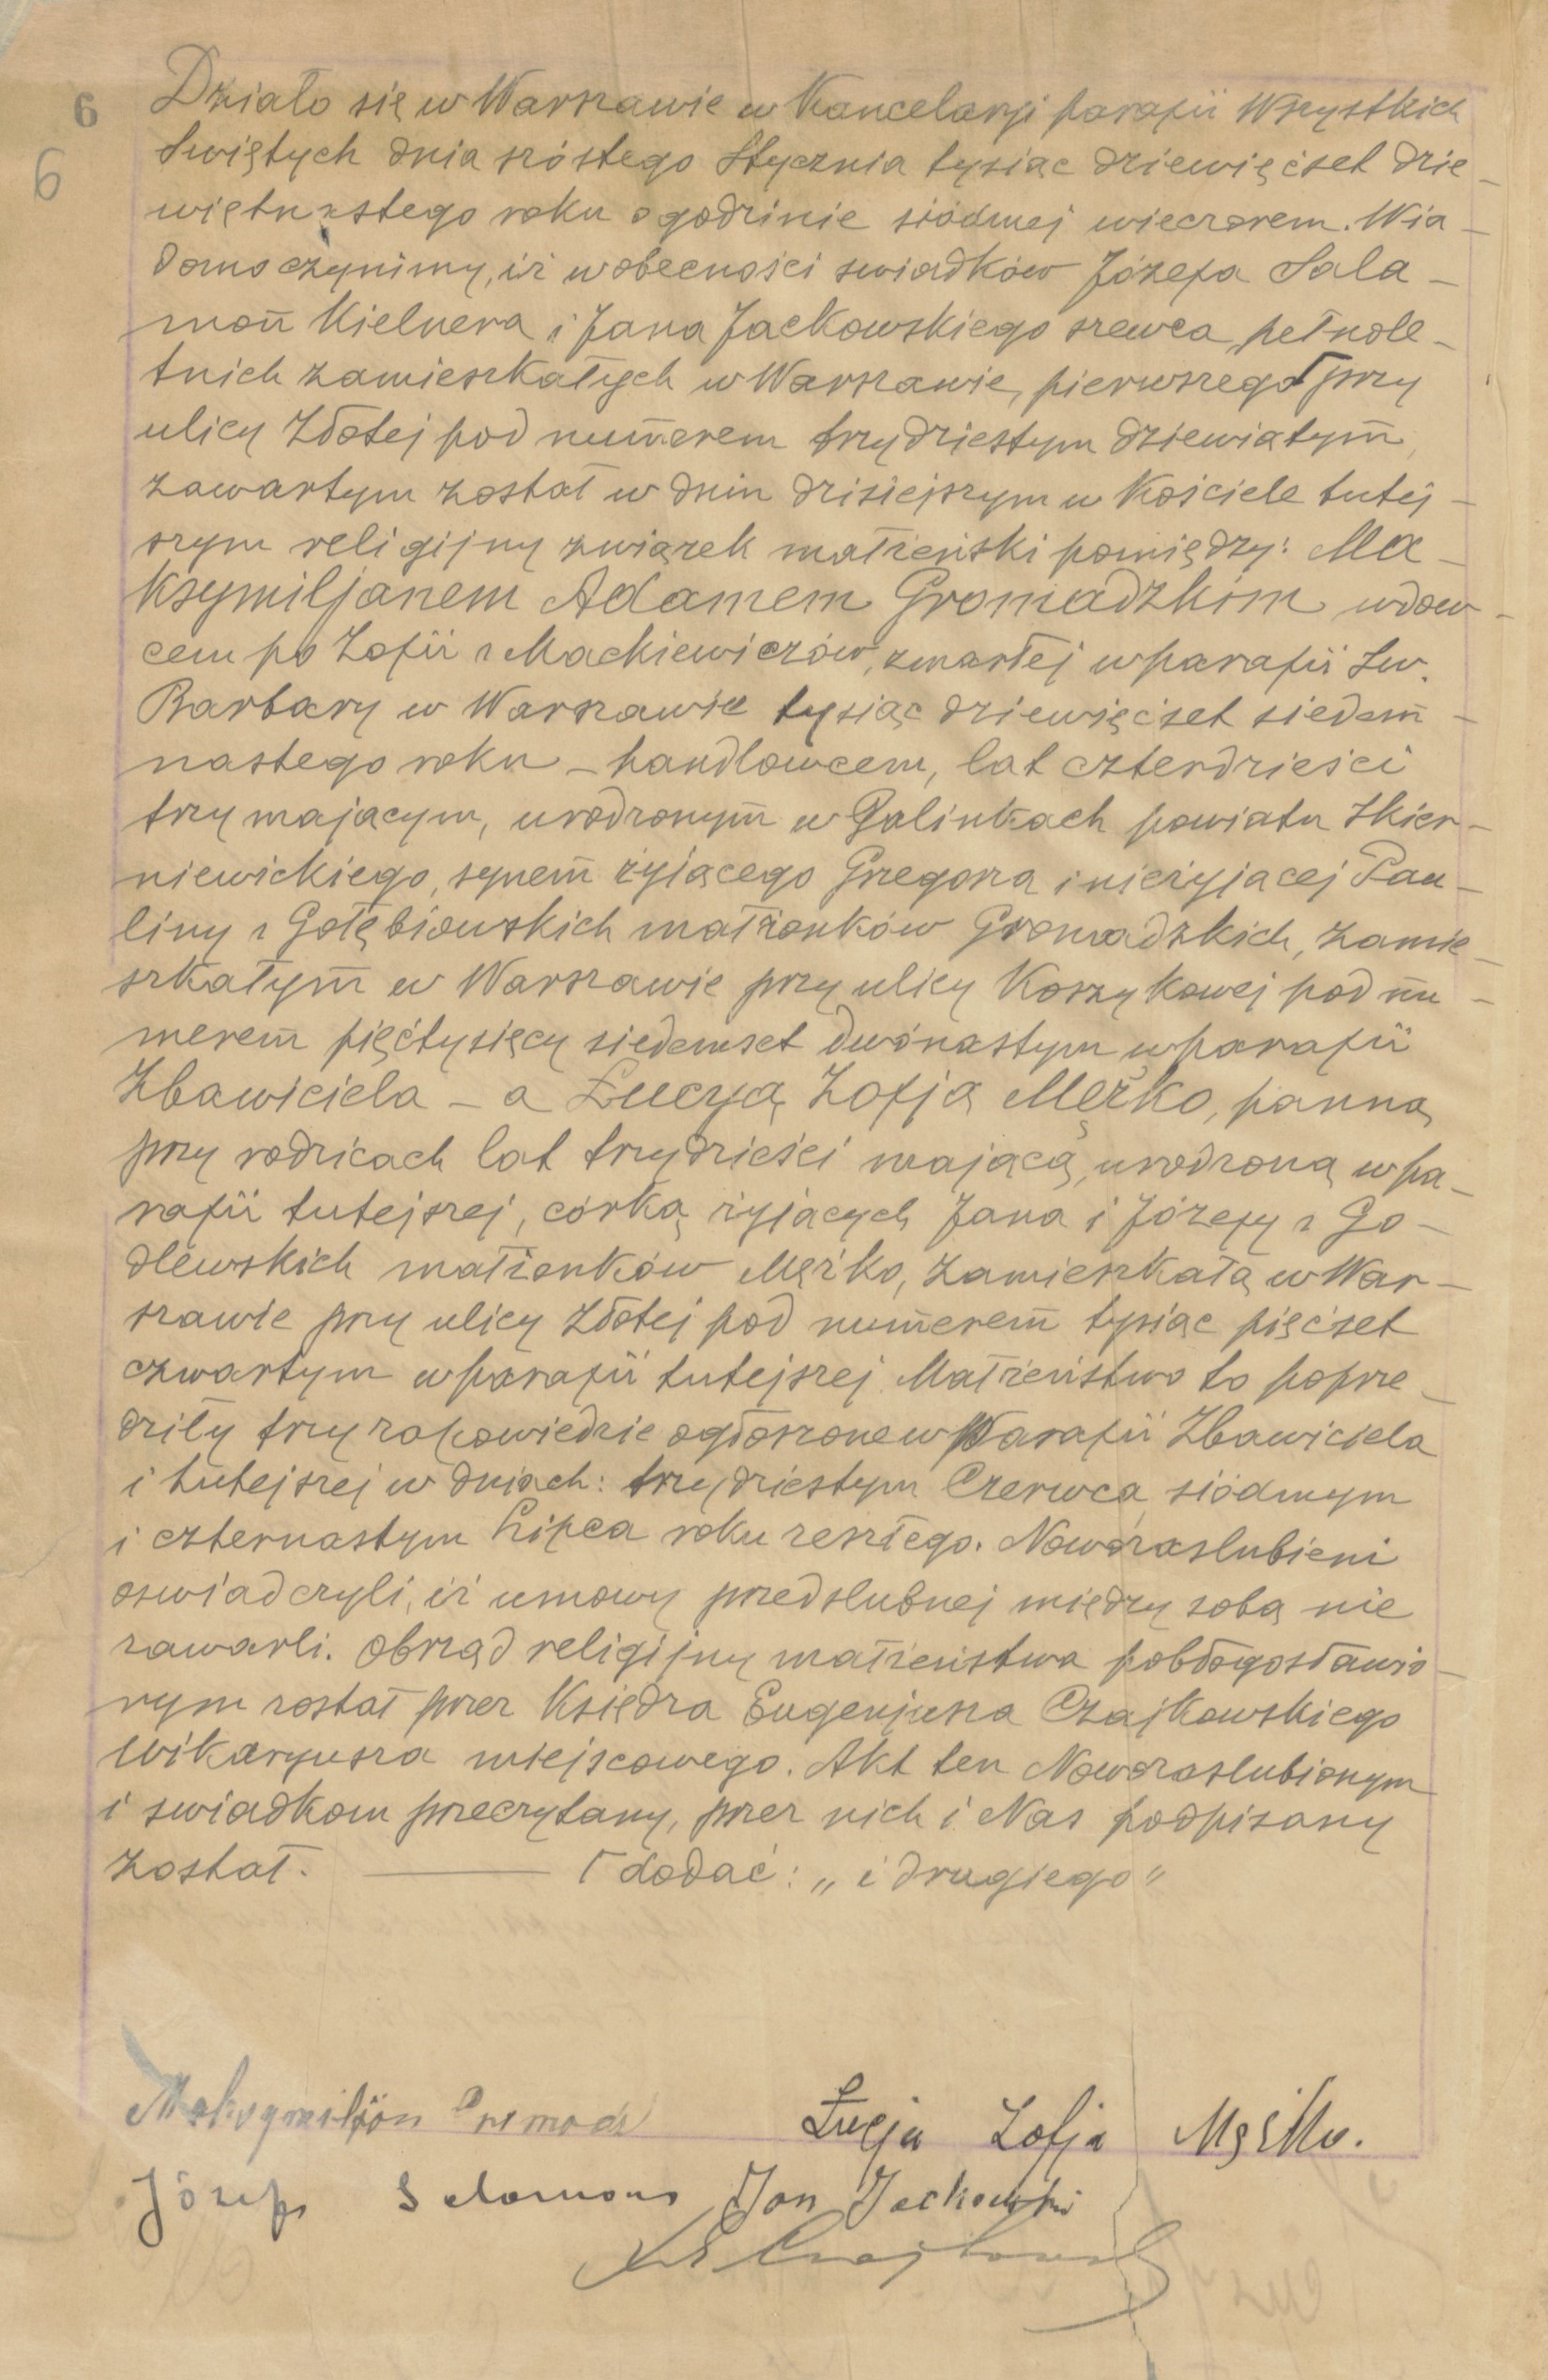 6
6
Działo się w Warszawie w Kancelarji parafii Wszystkich
Świętych dnia szóstego Stycznia tysiąc dziewięćset dzie-
więtnastego roku o godzinie siódmej wieczorem. Wia-
domo czynimy, iż w obecności swiadków Józefa Sala-
mon Kielnera i Jana Jackowskiego szewca, pełnole-
tnich zamieszkałych w Warszawie, pierwszego Γ przy
ulicy Złotej pod numerem trzydziestym dziewiątym,
zawartym został w dniu dzisiejszym w Kościele tutej-
szym religijny związek małżeński pomiędzy: Ma-
ksymiljanem Adamem Gromadzkim wdow-
cem po Zofii z Mackiewiczów, zmarłej w parafii Św.
Barbary w Warszawie tysiąc dziewięćset siedem-
nastego roku – handlowcem, lat czterdzieści
trzy mającym, urodzonym w Galinkach powiatu Skier-
niewickiego, synem żyjącego Grzegorza i nieżyjącej Pau-
liny z Gołębiowskich małżonków Gromadzkich, zamie-
szkałym w Warszawie przy ulicy Koszykowej pod nu-
merem pięćtysięcy siedemset dwónastym w parafii
Zbawiciela – a Łucyą Zofją Mężko, panną
przy rodzicach lat trzydzieści mającą, urodzoną w pa-
rafii tutejszej, córką żyjących Jana i Józefy z Go-
dlewskich małżonków Mężko, zamieszkałą w War-
szawie przy ulicy Złotej pod numerem tysiąc pięćset
czwartym w parafii tutejszej. Małżeństwo to poprze-
dziły trzy zapowiedzie ogłoszone w Parafii Zbawiciela
i tutejszej w dniach: trzydziestym Czerwca, siódmym
i czternastym Lipca roku zeszłego. Nowozaslubieni
oswiadczyli, iż umowy przedslubnej między sobą nie
zawarli. Obrząd religijny małżeństwa pobłogosławio-
nym został przez Księdza Eugenjusza Czajkowskiego
Wikaryusza miejscowego. Akt ten Nowozaslubionym
i swiadkom przeczytany, przez nich i Nas podpisany
został. ——— Γ dodać: „i drugiego"
Maksymiljan Gromadz Łucja Zofja Mężko.
Józef Salamon Jan Jackowski
Ks E Czajkowski